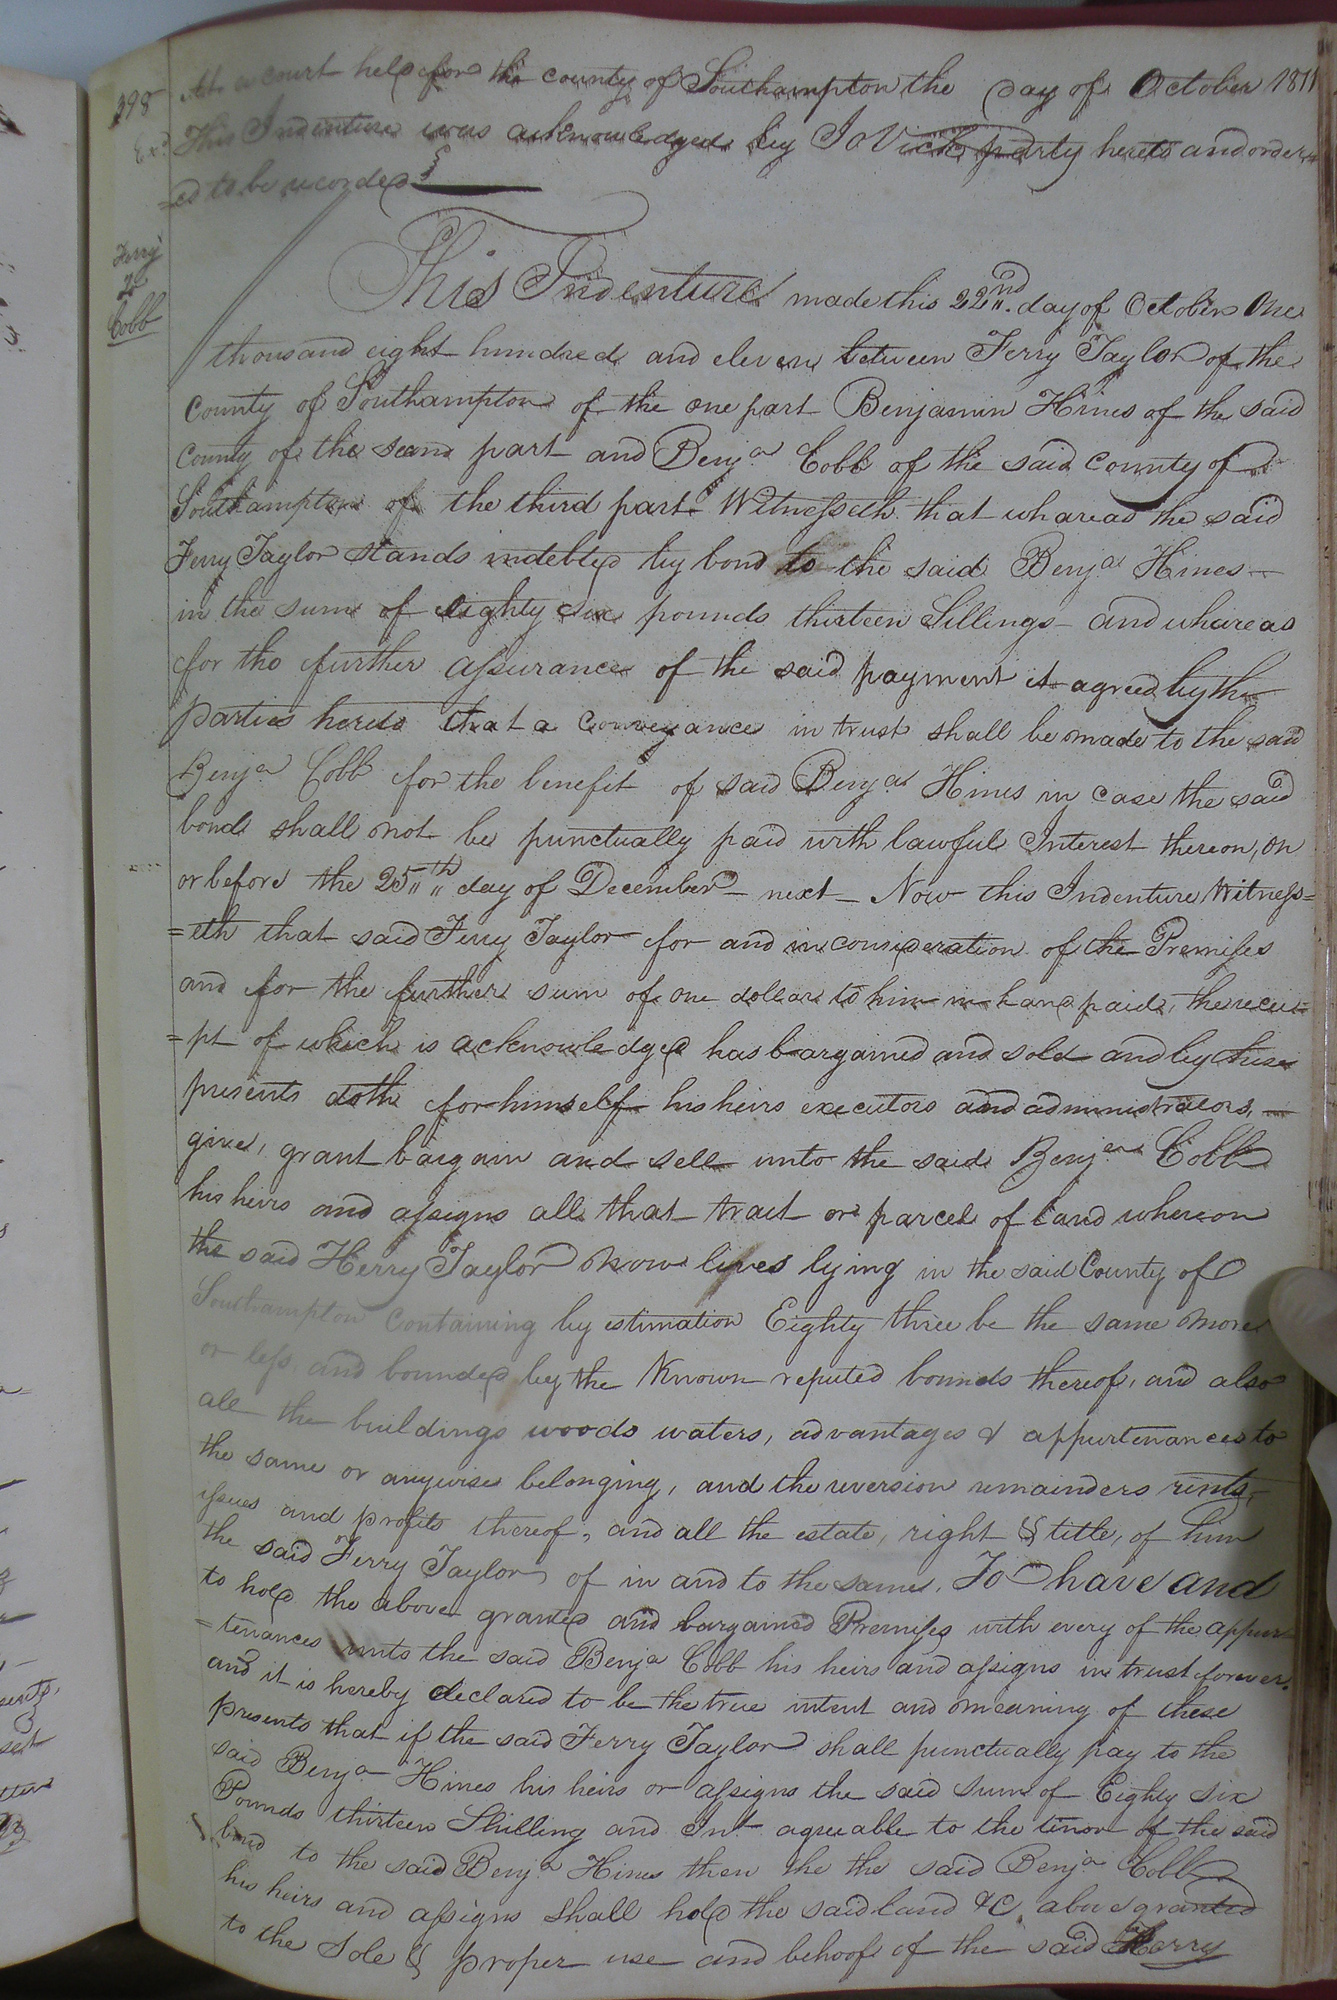 398
At a court held for the county of Southampton the day of October 1811
Exd This Indenture was acknowledged by Jo Vick party hereto and order
=ed to be recorded
Ferry
to
Cobb
This Indenture made this 22nd day of October One
thousand eight hundred and eleven between Ferry Taylor of the
County of Southampton of the one part Benjamin Hines of the said
County of the second part and Benja Cobb of the said County of
Southampton of the third part Witnesseth that whareas the said
Ferry Taylor stands indebted by bond to the said Benja Hines
in the sum of eighty six pounds thirteen Sillings and whareas
for the further assurance of the said payment it agreed by the
parties hereto that a Conveyance in trust shall be made to the said
Benja Cobb for the benefit of said Benja Hines in case the said
bond shall not be punctually paid with lawful Interest thereon, on
or before the 25th day of December next Now this Indenture Witness=
=eth that said Ferry Taylor for and in consideration of the Premises
and for the further sum of one dollar to him in hand paid, the recei=
=pt of which is acknowledged has bargained and sold and by these
presents doth for himself his heirs executors and administrators,
give, grant bargain and sell unto the said Benja Cobb
his heirs and assigns all that tract or parcel of land whereon
the said Herry Taylor now lives lying in the said County of
Southampton Containing by estimation Eighty three be the same more
or less and bounded by the known reputed bounds thereof, and also
all the buildings woods waters, advantages & appurtenances to
the same or anywise belonging, and the reversion remainders rents,
issues and profits thereof, and all the estate, right & title, of him
the said Ferry Taylor of in and to the same. To have and
to hold the above granted and bargained Premises with every of the appur
=tenances unto the said Benja Cobb his heirs and assigns in trust forever.
and it is hereby declared to be the true intent and meaning of these
presents that if the said Ferry Taylor shall punctually pay to the
said Benja Hines his heirs or assigns the said sum of Eighty six
Pounds thirteen Shilling and Int agreeable to the tenor of the said
bond to the said Benja Hines then the the said Benja Cobb
his heirs and assigns shall hold the said land &C above granted
to the Sole & proper use and behoof of the said Herry